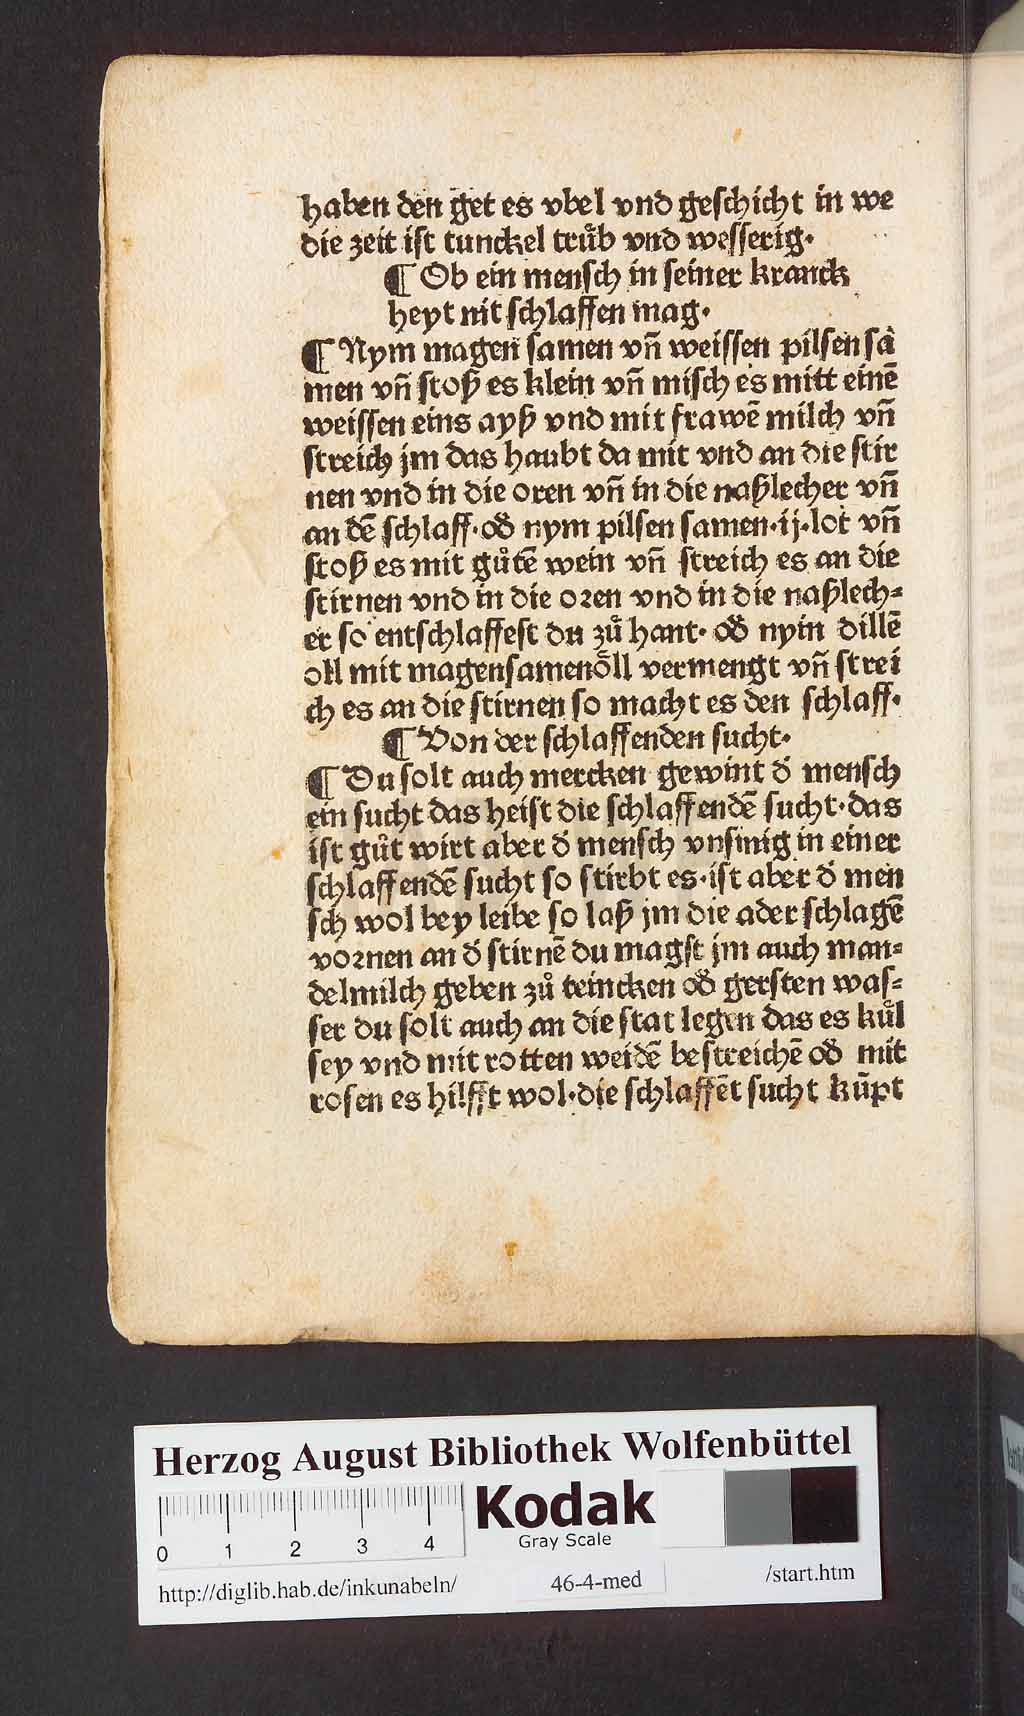 haben den get es vbel vnd geschicht in we
die zeit ist tunckel truͤb vnd wesserig·
¶ Ob ein mensch in seiner kranck
heyt nit schlaffen mag·
¶ Nym magen samen vn̄ weissen pilsen sa
men vn̄ stoß es klein vn̄ misch es mitt einē
weissen eins ayß vnd mit frawē milch vn̄
streich jm das haubt da mit vnd an die stir
nen vnd in die oren vn̄ in die naßlecher vn̄
an dē schlaff· od̓ nym pilsen samen·ij·lot vn̄
stoß es mit guͦtē wein vn̄ streich es an die
stirnen vnd in die oꝛen vnd in die naßlech⸗
er so entschlaffest du zuͦ hant· od̓ nym dillē
oll mit magensamenoͤll vermengt vn̄ strei
ch es an die stirnen so macht es den schlaff·
¶ Von der schlaffenden sucht·
¶ Du solt auch mercken gewint d̓ mensch
ein sucht das heist die schlaffendē sucht·das
ist guͦt wirt aber d̓ mensch vnsinig in einer
schlaffendē sucht so stirbt es·ist aber d̓ men
sch wol bey leibe so laß jm die ader schlagē
voꝛnen an d̓ stirnē du magst jm auch man⸗
delmilch geben zuͦ teincken od̓ gersten was⸗
ser du solt auch an die stat legen das es kuͤl
sey vnd mit rotten weidē bestreichē od̓ mit
rosen es hilfft wol·die schlaffēt sucht kūpt
Herzog August Bibliothek Wolfenbüttel
Kodak
Gray Scale
0 1 2 3 4
http://diglib.hab.de/inkunabeln/ 46-4-med /start.htm